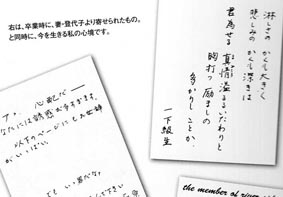 右は、卒業時に、妻・登代子より寄せられたもの。
と同時に、今を生きる私の心境です。
淋しさの かくも大きく
悲しみの かくも深きは
君為せる 真情溢るるいたわりと
胸打つ 励ましの
多かりし ことか。
一下級生
ア、心配だ—
なたには誘惑が多すぎます。
以下のページにもお世辞
がいっぱい。
the member of river